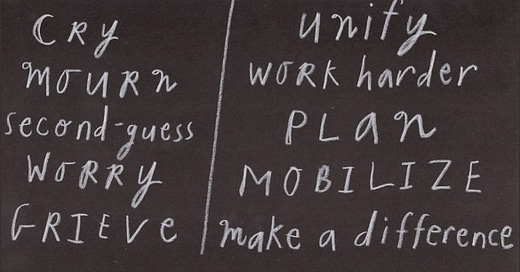 CRy
MOURN
second-guess
WORRy
GRIEVe
unify
WORK harder
PLan
MOBILIZE
make a difference